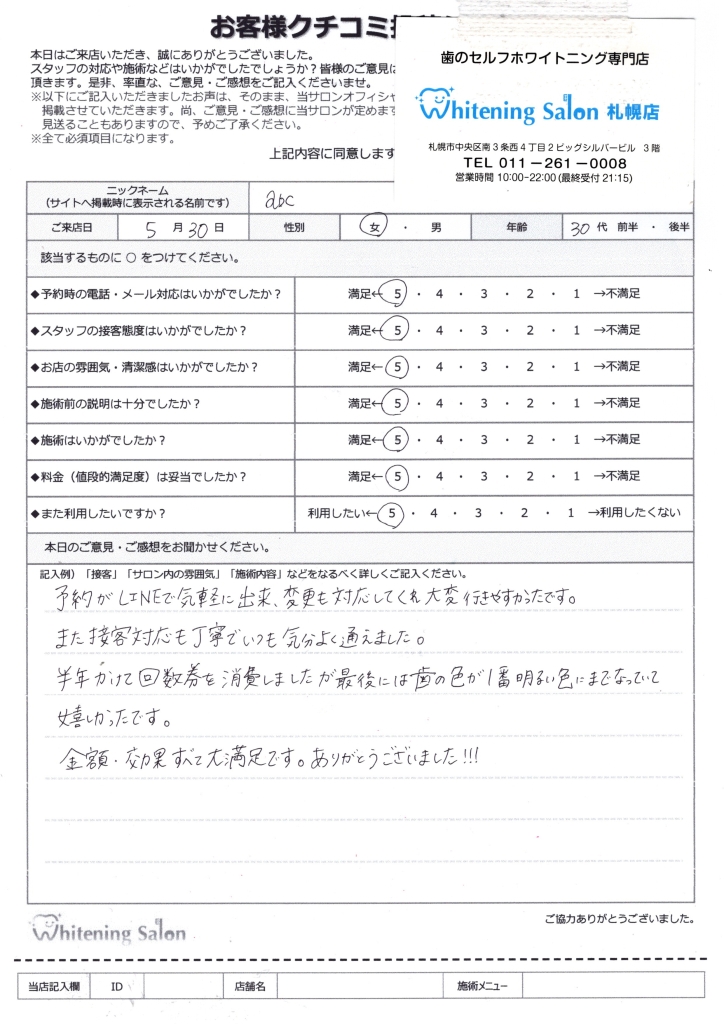 お客様クチコミ
歯のセルフホワイトニング専門店
Whitening Salon 札幌店
札幌市中央区南3条西4丁目2ビッグシルバービル 3階
TEL 011-261-0008
営業時間 10:00-22:00(最終受付 21:15)
本日はご来店いただき、誠にありがとうございました。
スタッフの対応や施術などはいかがでしたでしょうか?皆様のご意見は
頂きます。是非、率直な、ご意見・ご感想をご記入くださいませ。
※以下にご記入いただきましたお声は、そのまま、当サロンオフィシャ
掲載させていただきます。尚、ご意見・ご感想に当サロンが定めます
見送ることもありますので、予めご了承ください。
※全て必須項目になります。
上記内容に同意します
ニックネーム
(サイトへ掲載時に表示される名前です) abc
ご来店日 5 月 30 日 性別 女 ・ 男 年齢 30 代 前半 ・ 後半
該当するものに ○ をつけてください。
◆予約時の電話・メール対応はいかがでしたか? 満足← 5 ・ 4 ・ 3 ・ 2 ・ 1 →不満足
◆スタッフの接客態度はいかがでしたか? 満足← 5 ・ 4 ・ 3 ・ 2 ・ 1 →不満足
◆お店の雰囲気・清潔感はいかがでしたか? 満足← 5 ・ 4 ・ 3 ・ 2 ・ 1 →不満足
◆施術前の説明は十分でしたか? 満足← 5 ・ 4 ・ 3 ・ 2 ・ 1 →不満足
◆施術はいかがでしたか? 満足← 5 ・ 4 ・ 3 ・ 2 ・ 1 →不満足
◆料金(値段的満足度)は妥当でしたか? 満足← 5 ・ 4 ・ 3 ・ 2 ・ 1 →不満足
◆また利用したいですか? 利用したい← 5 ・ 4 ・ 3 ・ 2 ・ 1 →利用したくない
本日のご意見・ご感想をお聞かせください。
記入例)「接客」「サロン内の雰囲気」「施術内容」などをなるべく詳しくご記入ください。
予約がLINEで気軽に出来、変更も対応してくれ大変行きやすかったです。
また接客対応も丁寧でいつも気分よく通えました。
半年かけて回数券を消費しましたが最後には歯の色が1番明るい色にまでなっていて
嬉しかったです。
金額・効果すべて大満足です。ありがとうございました!!!
Whitening Salon
ご協力ありがとうございました。
当店記入欄 ID 店舗名 施術メニュー